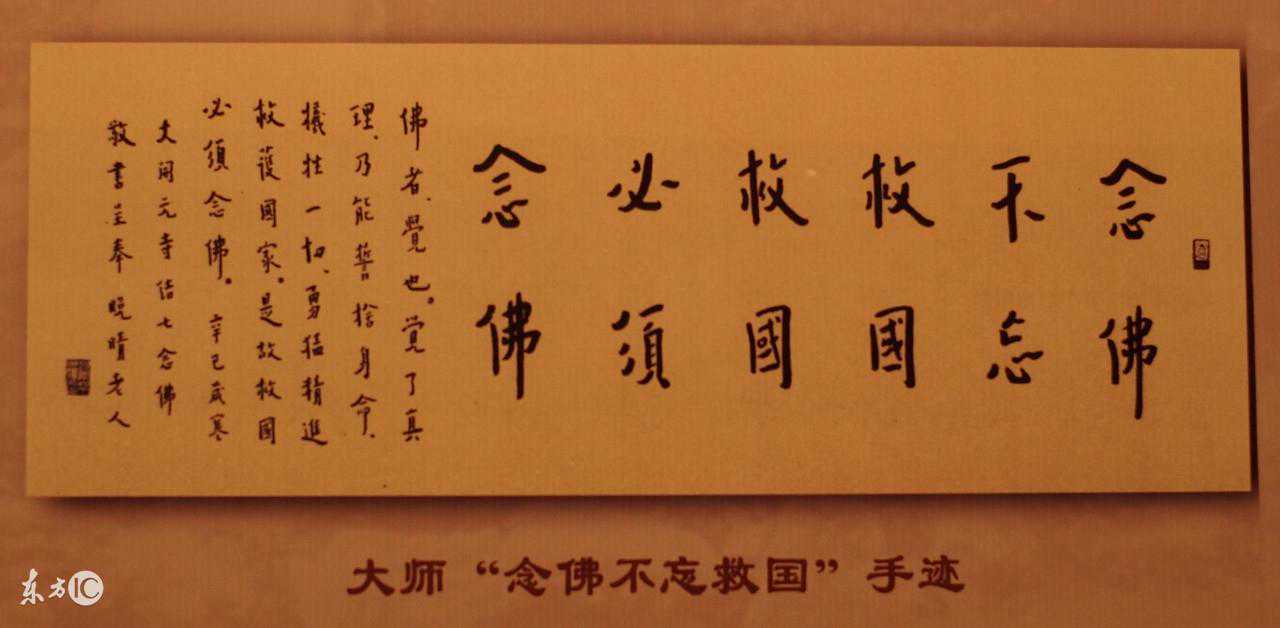 念佛
不忘
救國
救國
必須
念佛
佛者、覺也。覚了真
理、乃能誓捨身命、
犧牲一切、勇猛精進
救護國家。是故救國
必須念佛。辛巳歲寒
大開元寺結七念佛
敬書呈奉晚晴老人
大师“念佛不忘救国”手迹
东方IC